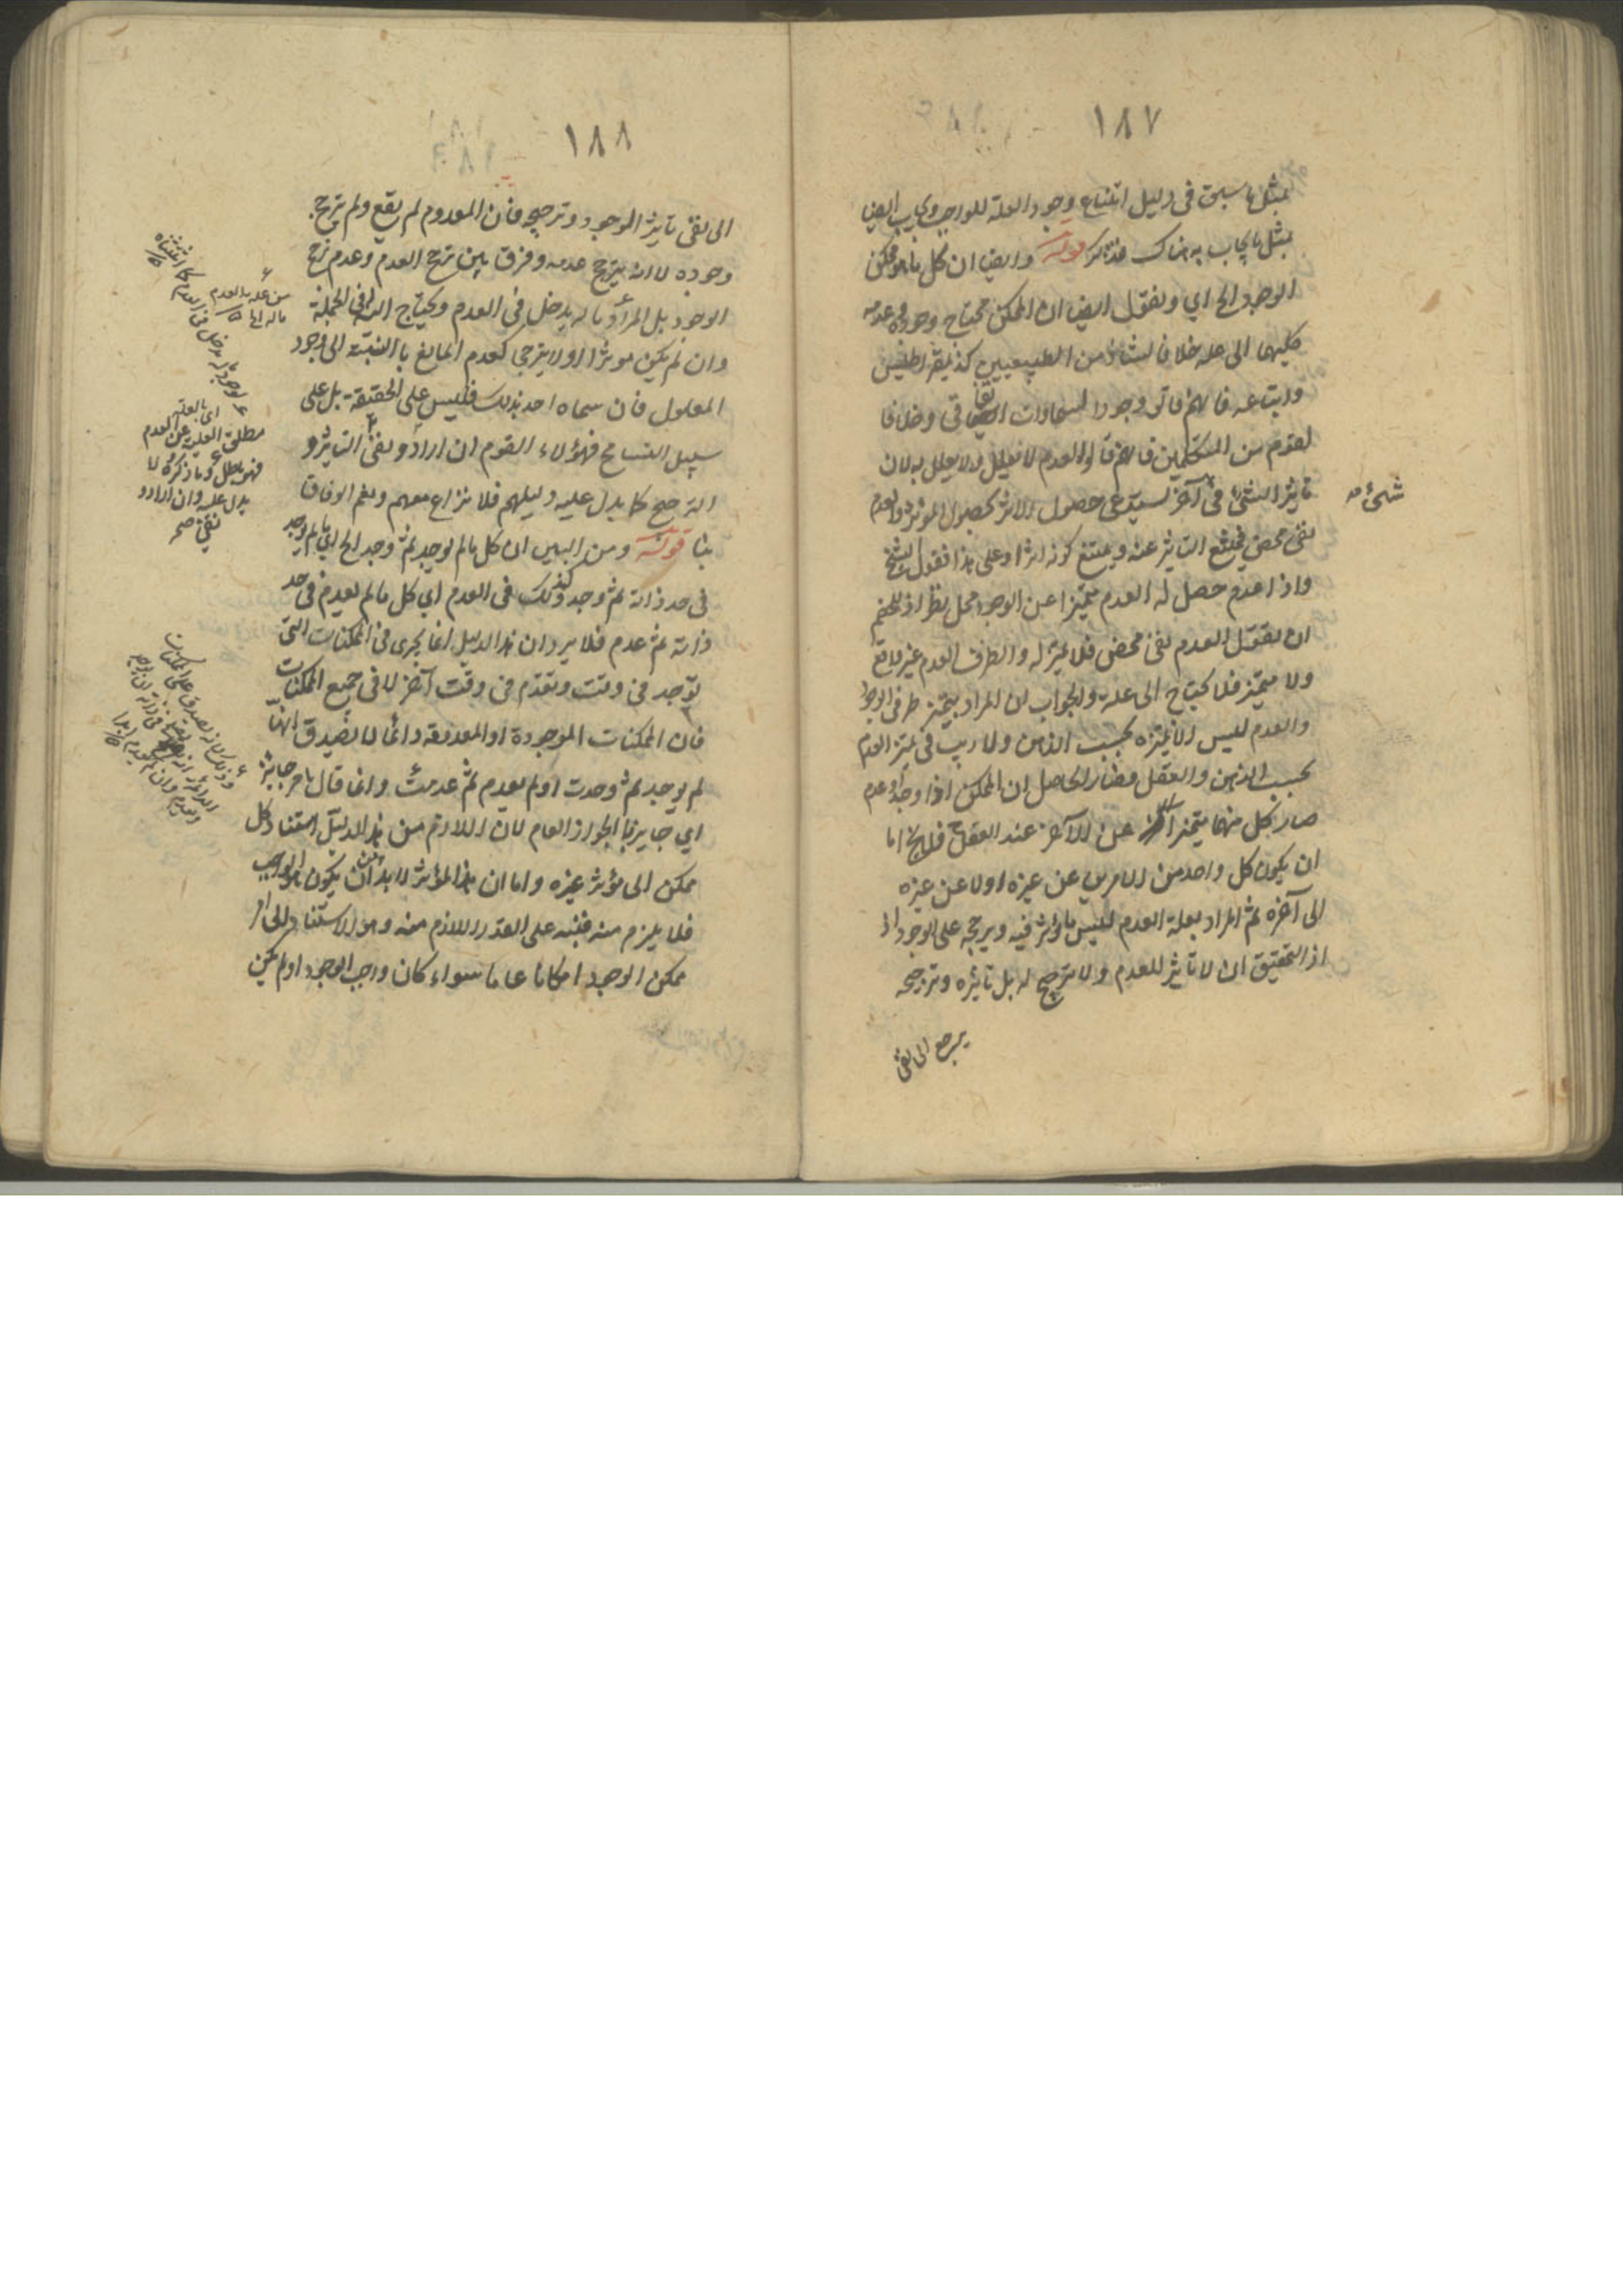 ١٨٧
بمثل ما سبق في دليل امتناع وجود العلة للواجب ويجاب ايضا
بمثل ما يجاب به هناك فتذكر قوله وايضا ان كل ما هو ممكن
الوجود الخ اي ونقول ايضا ان الممكن محتاج وجوده وعدمه
كليهما الى علة خلافا لشاذ من الطبيعيين كذيمقراطيس
واتباعه فانهم قالوا وجود السماوات اتفاقي وخلافا
لقوم من المتكلمين فانهم قالوا العدم لا يعلل ولا يعلل به لان
تاثير الشئ في آخر يستدعي حصول الاثر كحصول المؤثر والعدم
شئ صح
نفي محض فيمتنع التاثير عنه ويمتنع كونه اثرا وعلى هذا فقول الشيخ
واذا عدم حصل له العدم متميزا عن الوجود محل نظر اذ للخصم
ان يقول العدم نفي محض فلا تميز له والطرف العدم غير واقع
ولا متميز فلا يحتاج الى علة والجواب ان المراد بتميز طرفي الوجود
والعدم ليس الا تميزه بحسب الذهن ولا ريب في تميز العدم
بحسب الذهن والعقل فصار الحاصل ان الممكن اذا وجد وعدم
صار كل منهما متميزا عن الآخر عند العقل فلا يخ اما
ان يكون كل واحد من الامرين عن غيره اولا عن غيره
الى آخره ثم المراد بعلة العدم ليس ما يؤثر فيه ويرجحه على الوجود
اذ التحقيق ان لا تاثير للعدم ولا ترجيح له بل تاثيره وترجيحه
يرجع الى نفي
١٨٨
الى نفي تاثير الوجود وترجيحه فان المعدوم لم يقع ولم يترجح
وجوده لا انه يترجح عدمه وفرق بين ترجح العدم وعدم ترجح
الوجود بل المراد ما له يدخل في العدم ويحتاج اليه في الجملة
وان لم يكن موثرا اولا يترجى كعدم المانع باالنسبة الى وجود
المعلول فان سماه احد بذلك فليس على الحقيقة بل على
سبيل التسامح فهؤلاء القوم ان ارادو نفي التاثير و
الترجيح كما يدل عليه دليلهم فلا نزاع معهم ونعم الوفاق
بنا قوله ومن البين ان كل ما لم يوجد ثم وجد الخ اي ما لم يوجد
في حد ذاته ثم وجد وكذلك في العدم اي كل ما لم يعدم في حد
ذاته ثم عدم فلا يرد ان هذا الدليل انما يجرى في الممكنات التي
توجد في وقت وتعدم في وقت آخر لا في جميع الممكنات
فان الممكنات الموجودة او المعدومة دائما لا يصدق انها
لم يوجد ثم وجدت او لم يعدم ثم عدمت وانما قال بامر جايز
اي جايز بالجواز العام لان اللازم من هذا الدليل استناد كل
ممكن الى مؤثر غيره واما ان هذا المؤثر لا بد ان يكون هو الواجب
فلا يلزم منه فنبه على القدر اللازم منه وهو الاستناد الى امر
ممكن الوجود امكانا عاما سواء كان واجب الوجود او لم يكن
من علة العدم
اي بالعلة
مطلق العلية عن العدم
فهو باطل وما ذكره لا
يدل عليه وان ارادو
نفي صح